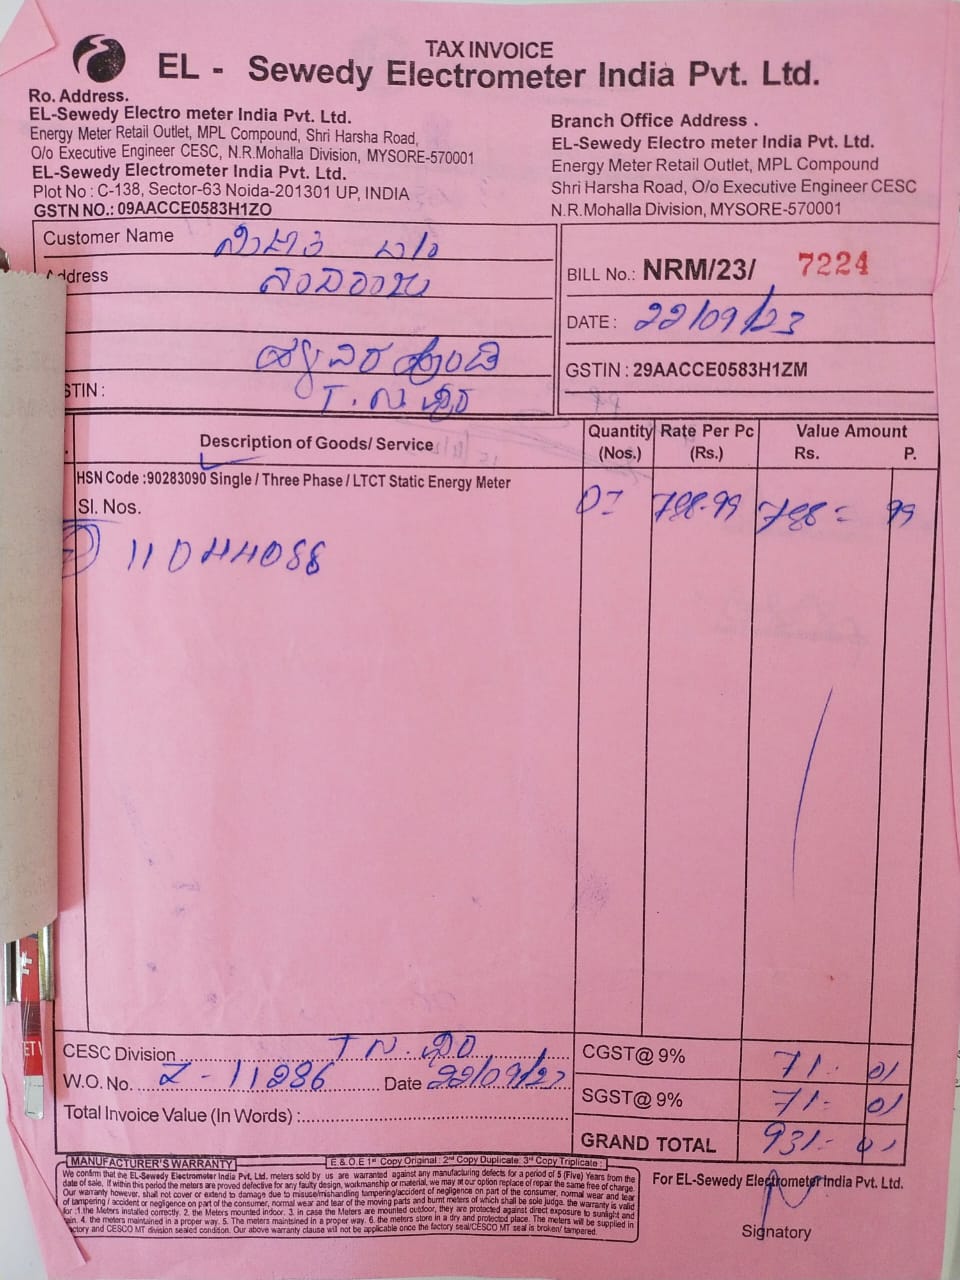 TAX INVOICE
EL - Sewedy Electrometer India Pvt. Ltd.
Ro. Address.
EL-Sewedy Electro meter India Pvt. Ltd.
Energy Meter Retail Outlet, MPL Compound, Shri Harsha Road,
O/o Executive Engineer CESC, N.R.Mohalla Division, MYSORE-570001
EL-Sewedy Electrometer India Pvt. Ltd.
Plot No : C-138, Sector-63 Noida-201301 UP, INDIA
GSTN NO.: 09AACCE0583H1ZO
Branch Office Address .
EL-Sewedy Electro meter India Pvt. Ltd.
Energy Meter Retail Outlet, MPL Compound
Shri Harsha Road, O/o Executive Engineer CESC
N.R.Mohalla Division, MYSORE-570001
Customer Name
ddress
STIN :
BILL No.: NRM/23/ 7224
DATE : 22/09/23
GSTIN : 29AACCE0583H1ZM
Description of Goods/ Service
Quantity (Nos.)
Rate Per Pc (Rs.)
Value Amount
Rs. P.
HSN Code :90283090 Single / Three Phase / LTCT Static Energy Meter
Sl. Nos.
788-99 788= 99
11044088
CESC Division
W.O. No. Z-11286 Date 22/09/23
Total Invoice Value (In Words) :
CGST@ 9% 71- 01
SGST@ 9% 71- 01
GRAND TOTAL 931- 01
MANUFACTURER'S WARRANTY
E & O.E 1st Copy Original : 2nd Copy Duplicate: 3rd Copy Triplicate :
We confirm that the EL-Sewedy Electrometer India Pvt, Ltd. meters sold by us are warranted against any manufacturing defects for a period of 5 (Five) Years from the
date of sale, If within this period the meters are proved defective for any faulty design, workmanship or material, we may at our option replace of repair the same free of charge.
Our warranty however, shall not cover or extend to damage due to misuse/mishandling tampering/accident of negligence on part of the consumer, normal wear and tear
of tampering / accident or negligence on part of the consumer, normal wear and tear of the moving parts and burnt meters of which shall be sole judge, the warranty is valid
for :1.the Meters installed correctly. 2. the Meters mounted indoor. 3. in case the Meters are mounted outdoor, they are protected against direct exposure to sunlight and
ain. 4. the meters maintained in a proper way. 5. The meters maintsined in a proper way. 6. the meters store in a dry and protected place. The meters will be supplied in
actory and CESCO MT division sealed condition. Our above warranty clause will not be applicable once the factory seal/CESCO MT seal is broken/ tampered.
For EL-Sewedy Electrometer India Pvt. Ltd.
Signatory